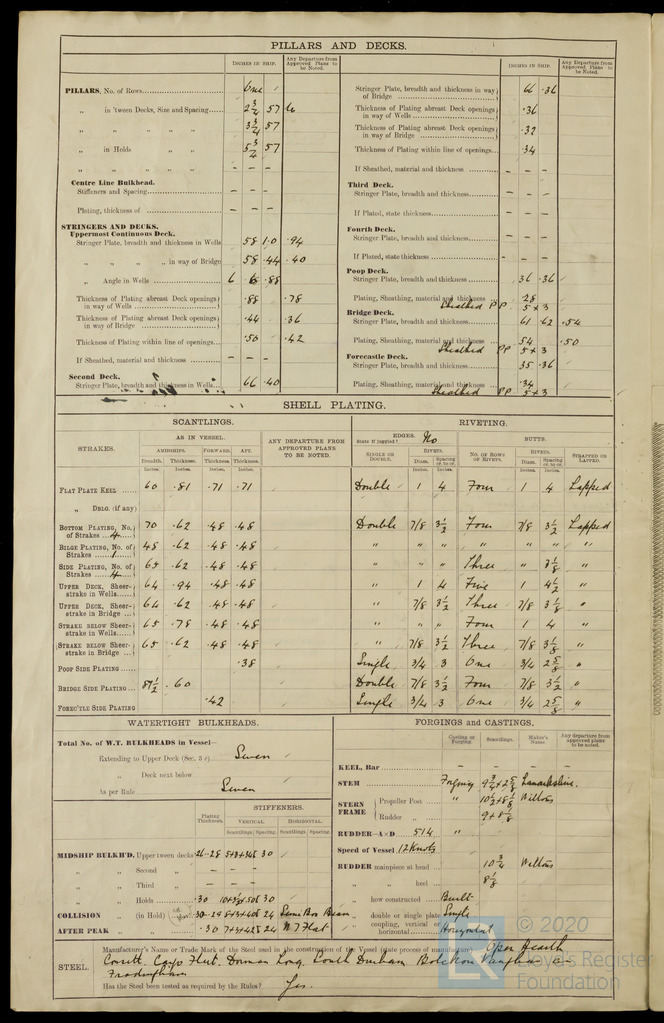 PILLARS AND DECKS.
INCHES IN SHIP.
Any Departure from Approved Plans to be Noted.
PILLARS, No. of Rows One
„ in 'tween Decks, Size and Spacing 2 3/4 57
„ „ „ „ 3 3/4 57
„ in Holds „ „ 5 3/4 57
„ „ „ „ – – –
Centre Line Bulkhead.
Stiffeners and Spacing – – –
Plating, thickness of – – –
STRINGERS AND DECKS.
Uppermost Continuous Deck.
Stringer Plate, breadth and thickness in Wells 58 1.0 .94
„ „ „ „ in way of Bridge 58 .44 .40
„ Angle in Wells 6 .88
Thickness of Plating abreast Deck openings in way of Wells .88 .78
Thickness of Plating abreast Deck openings in way of Bridge .44 .36
Thickness of Plating within line of openings .50 .42
If Sheathed, material and thickness – – –
Second Deck.
Stringer Plate, breadth and thickness in Wells 66 .40
INCHES IN SHIP.
Any Departure from Approved Plans to be Noted.
Stringer Plate, breadth and thickness in way of Bridge 66 .36
Thickness of Plating abreast Deck openings in way of Wells .36
Thickness of Plating abreast Deck openings in way of Bridge .32
Thickness of Plating within line of openings .34
If Sheathed, material and thickness – – –
Third Deck.
Stringer Plate, breadth and thickness – – –
If Plated, state thickness – – –
Fourth Deck.
Stringer Plate, breadth and thickness – – –
If Plated, state thickness – – –
Poop Deck.
Stringer Plate, breadth and thickness 36 .36
Plating, Sheathing, material and thickness .28
Sheathed PP 5 x 3
Bridge Deck.
Stringer Plate, breadth and thickness 61 .62 .54
Plating, Sheathing, material and thickness .54 .50
Sheathed PP 5 x 3
Forecastle Deck.
Stringer Plate, breadth and thickness 35 .36
Plating, Sheathing, material and thickness .34
Sheathed PP 5 x 3
SHELL PLATING.
SCANTLINGS. RIVETING.
STRAKES.
AS IN VESSEL.
AMIDSHIPS. FORWARD. AFT.
Breadth. Thickness. Thickness. Thickness.
Inches. Inches. Inches. Inches.
ANY DEPARTURE FROM APPROVED PLANS TO BE NOTED.
EDGES. No
State if joggled?
SINGLE OR DOUBLE.
RIVETS.
Diam. Spacing cr. to cr.
Inches. Inches.
BUTTS.
No. OF ROWS OF RIVETS.
RIVETS.
Diam. Spacing cr. to cr.
Inches. Inches.
STRAPPED OR LAPPED.
FLAT PLATE KEEL 60 .81 .71 .71 Double 1 4 Four 1 4 Lapped
„ DBLG. (if any)
BOTTOM PLATING, No. of Strakes 4 70 .62 .48 .48 Double 7/8 3 1/2 Four 7/8 3 1/2 Lapped
BILGE PLATING, No. of Strakes 1 48 .62 .48 .48 „ „ „ „ „ „ „
SIDE PLATING, No. of Strakes 4 65 .62 .48 .48 „ „ „ Three „ 3 1/8 „
UPPER DECK, Sheerstrake in Wells 64 .94 .48 .48 „ 1 4 Five 1 4 1/2 „
UPPER DECK, Sheerstrake in Bridge 64 .62 .48 .48 „ 7/8 3 1/2 Three 7/8 3 1/8 „
STRAKE BELOW SHEERstrake in Wells 65 .78 .48 .48 „ „ „ Four 1 4 „
STRAKE BELOW SHEERstrake in Bridge 65 .62 .48 .48 „ 7/8 3 1/2 Three 7/8 3 1/8 „
POOP SIDE PLATING .38 Single 3/4 3 One 3/4 2 5/8 „
BRIDGE SIDE PLATING 87 1/2 .60 Double 7/8 3 1/2 Four 7/8 3 1/2 „
FOREC'TLE SIDE PLATING .42 Single 3/4 3 One 3/4 2 5/8 „
WATERTIGHT BULKHEADS.
Total No. of W.T. BULKHEADS in Vessel—
Extending to Upper Deck (Sec. 3 c) Seven
„ Deck next below
As per Rule Seven
STIFFENERS.
Plating Thickness. VERTICAL. HORIZONTAL.
Scantlings Spacing. Scantlings Spacing.
MIDSHIP BULKH'D, Upper tween decks 30
„ „ Second „
„ „ Third „
„ „ Holds .30 30
COLLISION „ (in Hold) 24 Semi Box Beam
AFTER PEAK „ „ .30 24 W T Flat
FORGINGS and CASTINGS.
Casting or Forging. Scantlings. Maker's Name. Any departure from approved plans to be noted.
KEEL, Bar – – – –
STEM Forging 9 3/4 x 2 5/8 Lanarkshire
STERN FRAME
Propeller Post „ 10 1/2 x 8 1/8 Wiltons
Rudder „ 9 x 8 1/8
RUDDER—A×D 514 „
Speed of Vessel 12 Knots
RUDDER mainpiece at head 10 3/4 Wiltons
„ „ heel 8 1/8
„ how constructed Built
„ double or single plate Single
„ coupling, vertical or horizontal Horizontal
STEEL.
Manufacturer's Name or Trade Mark of the Steel used in the construction of the Vessel (state process of manufacture) Open Hearth
Consett. Cargo Fleet. Dorman Long. South Durham Bolckow Vaughan &
Frodingham
Has the Steel been tested as required by the Rules? Yes.
© 2020
Lloyd's Register
Foundation
LR